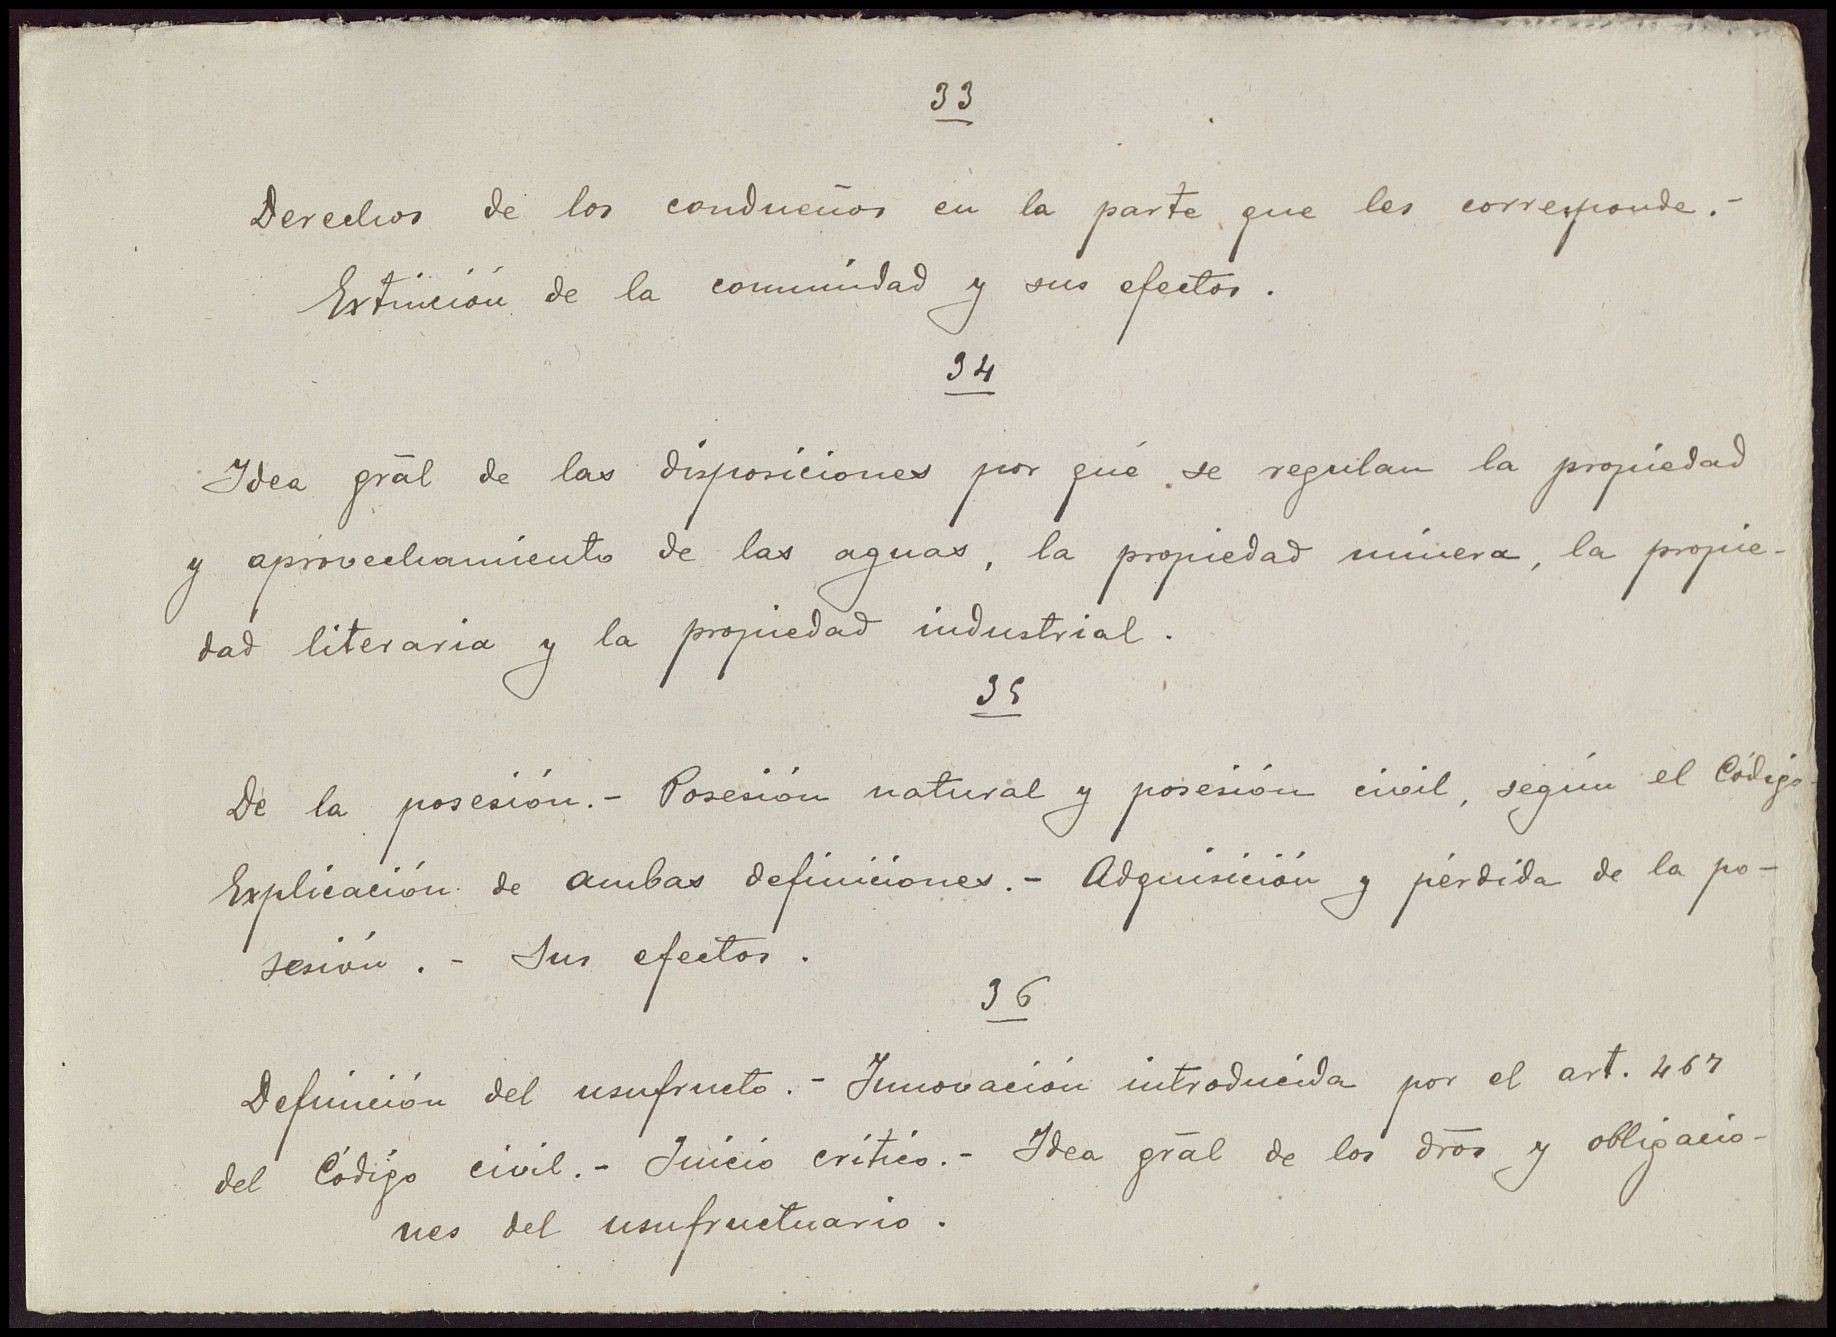 33
Derechos de los condueños en la parte que les corresponde.-
Extinción de la comunidad y sus efectos.
34
Idea grāl de las disposiciones por qué se regulan la propiedad
y aprovechamiento de las aguas, la propiedad minera, la propie-
dad literaria y la propiedad industrial.
35
De la posesión.- Posesión natural y posesión civil, según el Código
Explicación de ambas definiciones.- Adquisición y pérdida de la po-
sesión.- Sus efectos.
36
Definición del usufructo.- Innovación introducida por el art. 467
del Código civil.- Juicio crítico.- Idea grāl de los drōs y obligacio-
nes del usufructuario.